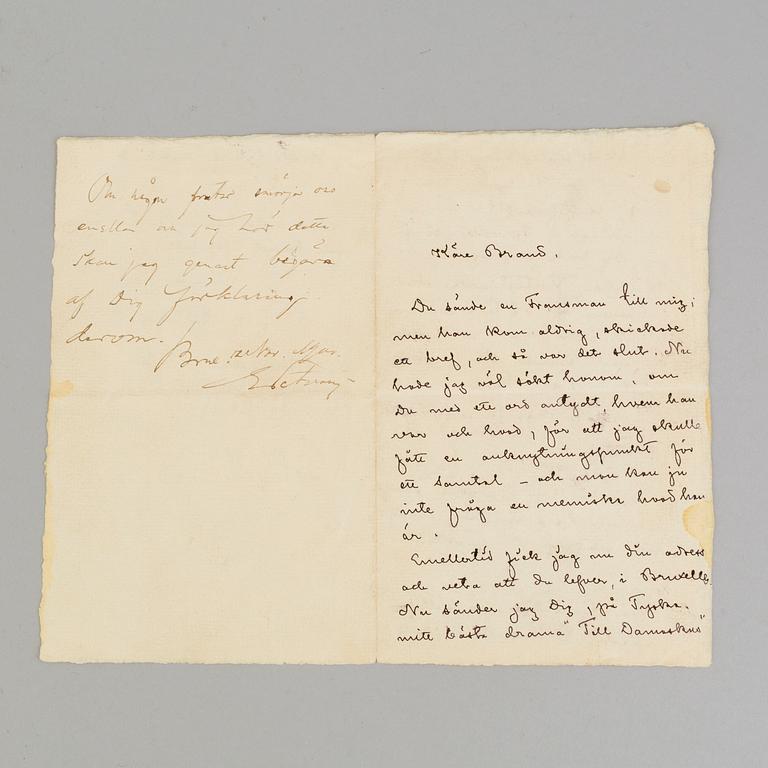 Om någon
emellan oss jag hör detta
Skall jag genast begära
af Dig förklaring
derom.
Käre Brand.
Du sände en Fransman till mig;
men han kom aldrig, skickade
ett bref, och så var det slut. Nu
hade jag väl sökt honom, om
Du med ett ord antydt, hvem han
var och hvad, för att jag skulle
fått en anknytningspunkt för
ett samtal – och man kan ju
inte fråga en menniska hvad han
är.
Emellertid fick jag nu din adress
och veta att du lefver, i Bruxelles.
Nu sänder jag Dig, på Tyska.
mitt bästa drama "Till Damaskus"